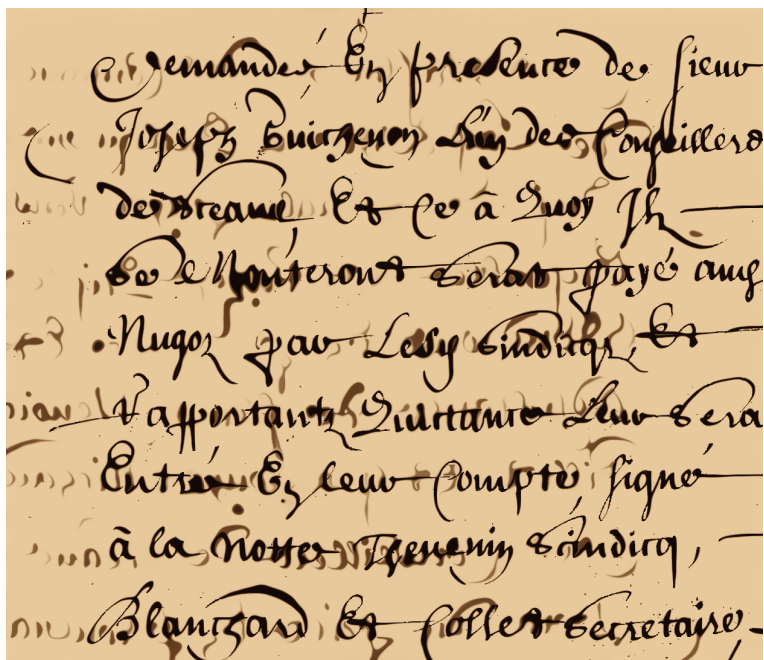 demandes En presence de sieur
Joseph Guichenon L'un des Conseillers
de sceans, Et Ce â Quoy Ils
se Monteront serat payé aux
par Lesd sindicqz, Et
Rapportantz Quictance Leur sera
Entré En leur Compte, signé
â la Notte Thevenin sindicq,
Blanchard Et Collet secretaire